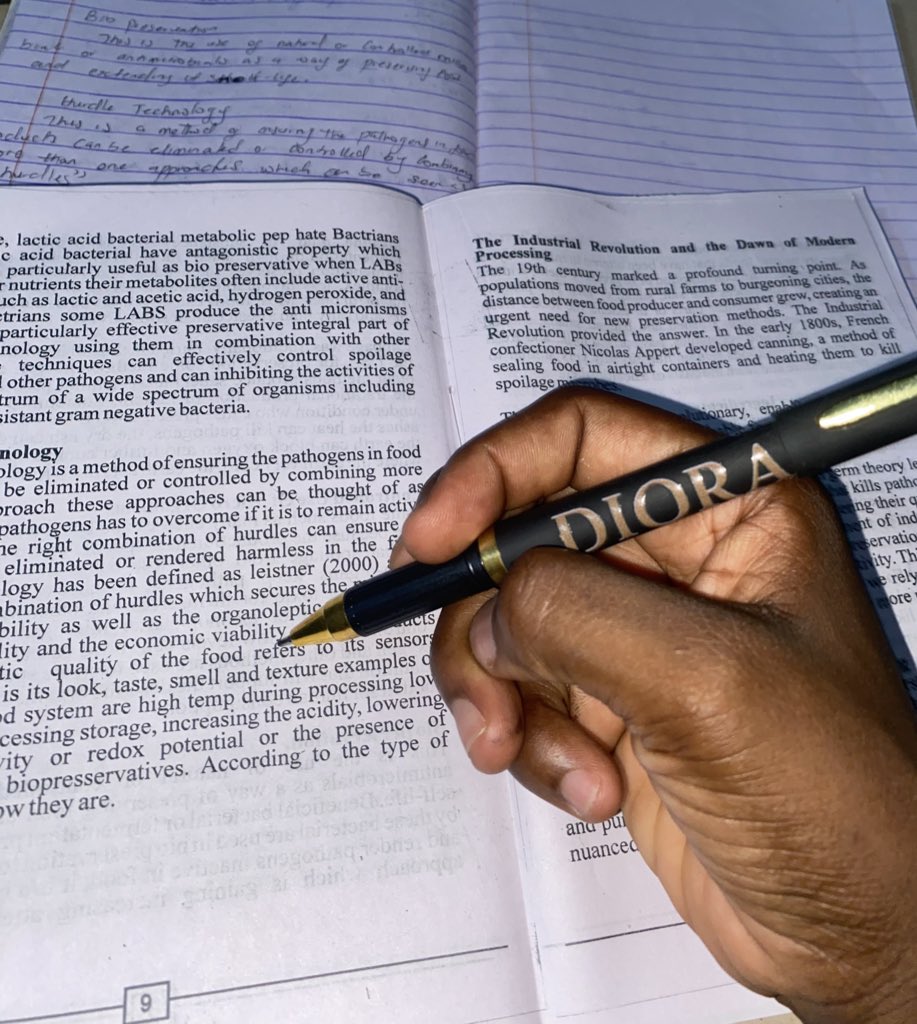 Bio Preservation
This is the use of natural or Controlled
or antimicrobials as a way of preserving food
and extending it shelf life.
Hurdle Technology
This is a method of ensuring the pathogens in
can be eliminated or controlled by Combining
than one approaches. which can be seen
hurdles"
lactic acid bacterial metabolic pep hate Bactrians
c acid bacterial have antagonistic property which
particularly useful as bio preservative when LABs
nutrients their metabolites often include active anti-
such as lactic and acetic acid, hydrogen peroxide, and
some LABS produce the anti micronisms
particularly effective preservative integral part of
using them in combination with other
techniques can effectively control spoilage
other pathogens and can inhibiting the activities of
of a wide spectrum of organisms including
gram negative bacteria.
nology
ology is a method of ensuring the pathogens in food
be eliminated or controlled by combining more
these approaches can be thought of as
pathogens has to overcome if it is to remain activ
right combination of hurdles can ensure
eliminated or rendered harmless in the
has been defined as leistner (2000)
bination of hurdles which secures the
bility as well as the organoleptic ducts
lity and the economic viability
tic quality of the food refers to its sensors
is its look, taste, smell and texture examples
system are high temp during processing lov
cessing storage, increasing the acidity, lowering
vity or redox potential or the presence of
biopresservatives. According to the type of
ow they are.
9
The Industrial Revolution and the Dawn of Modern
Processing
The 19th century marked a profound turning point. As
populations moved from rural farms to burgeoning cities, the
distance between food producer and consumer grew, creating an
urgent need for new preservation methods. The Industrial
Revolution provided the answer. In the early 1800s, French
confectioner Nicolas Appert developed canning, a method of
sealing food in airtight containers and heating them to kill
spoilage
erm theory
kills
ing their
of
rely
and
nuanced
DIORA